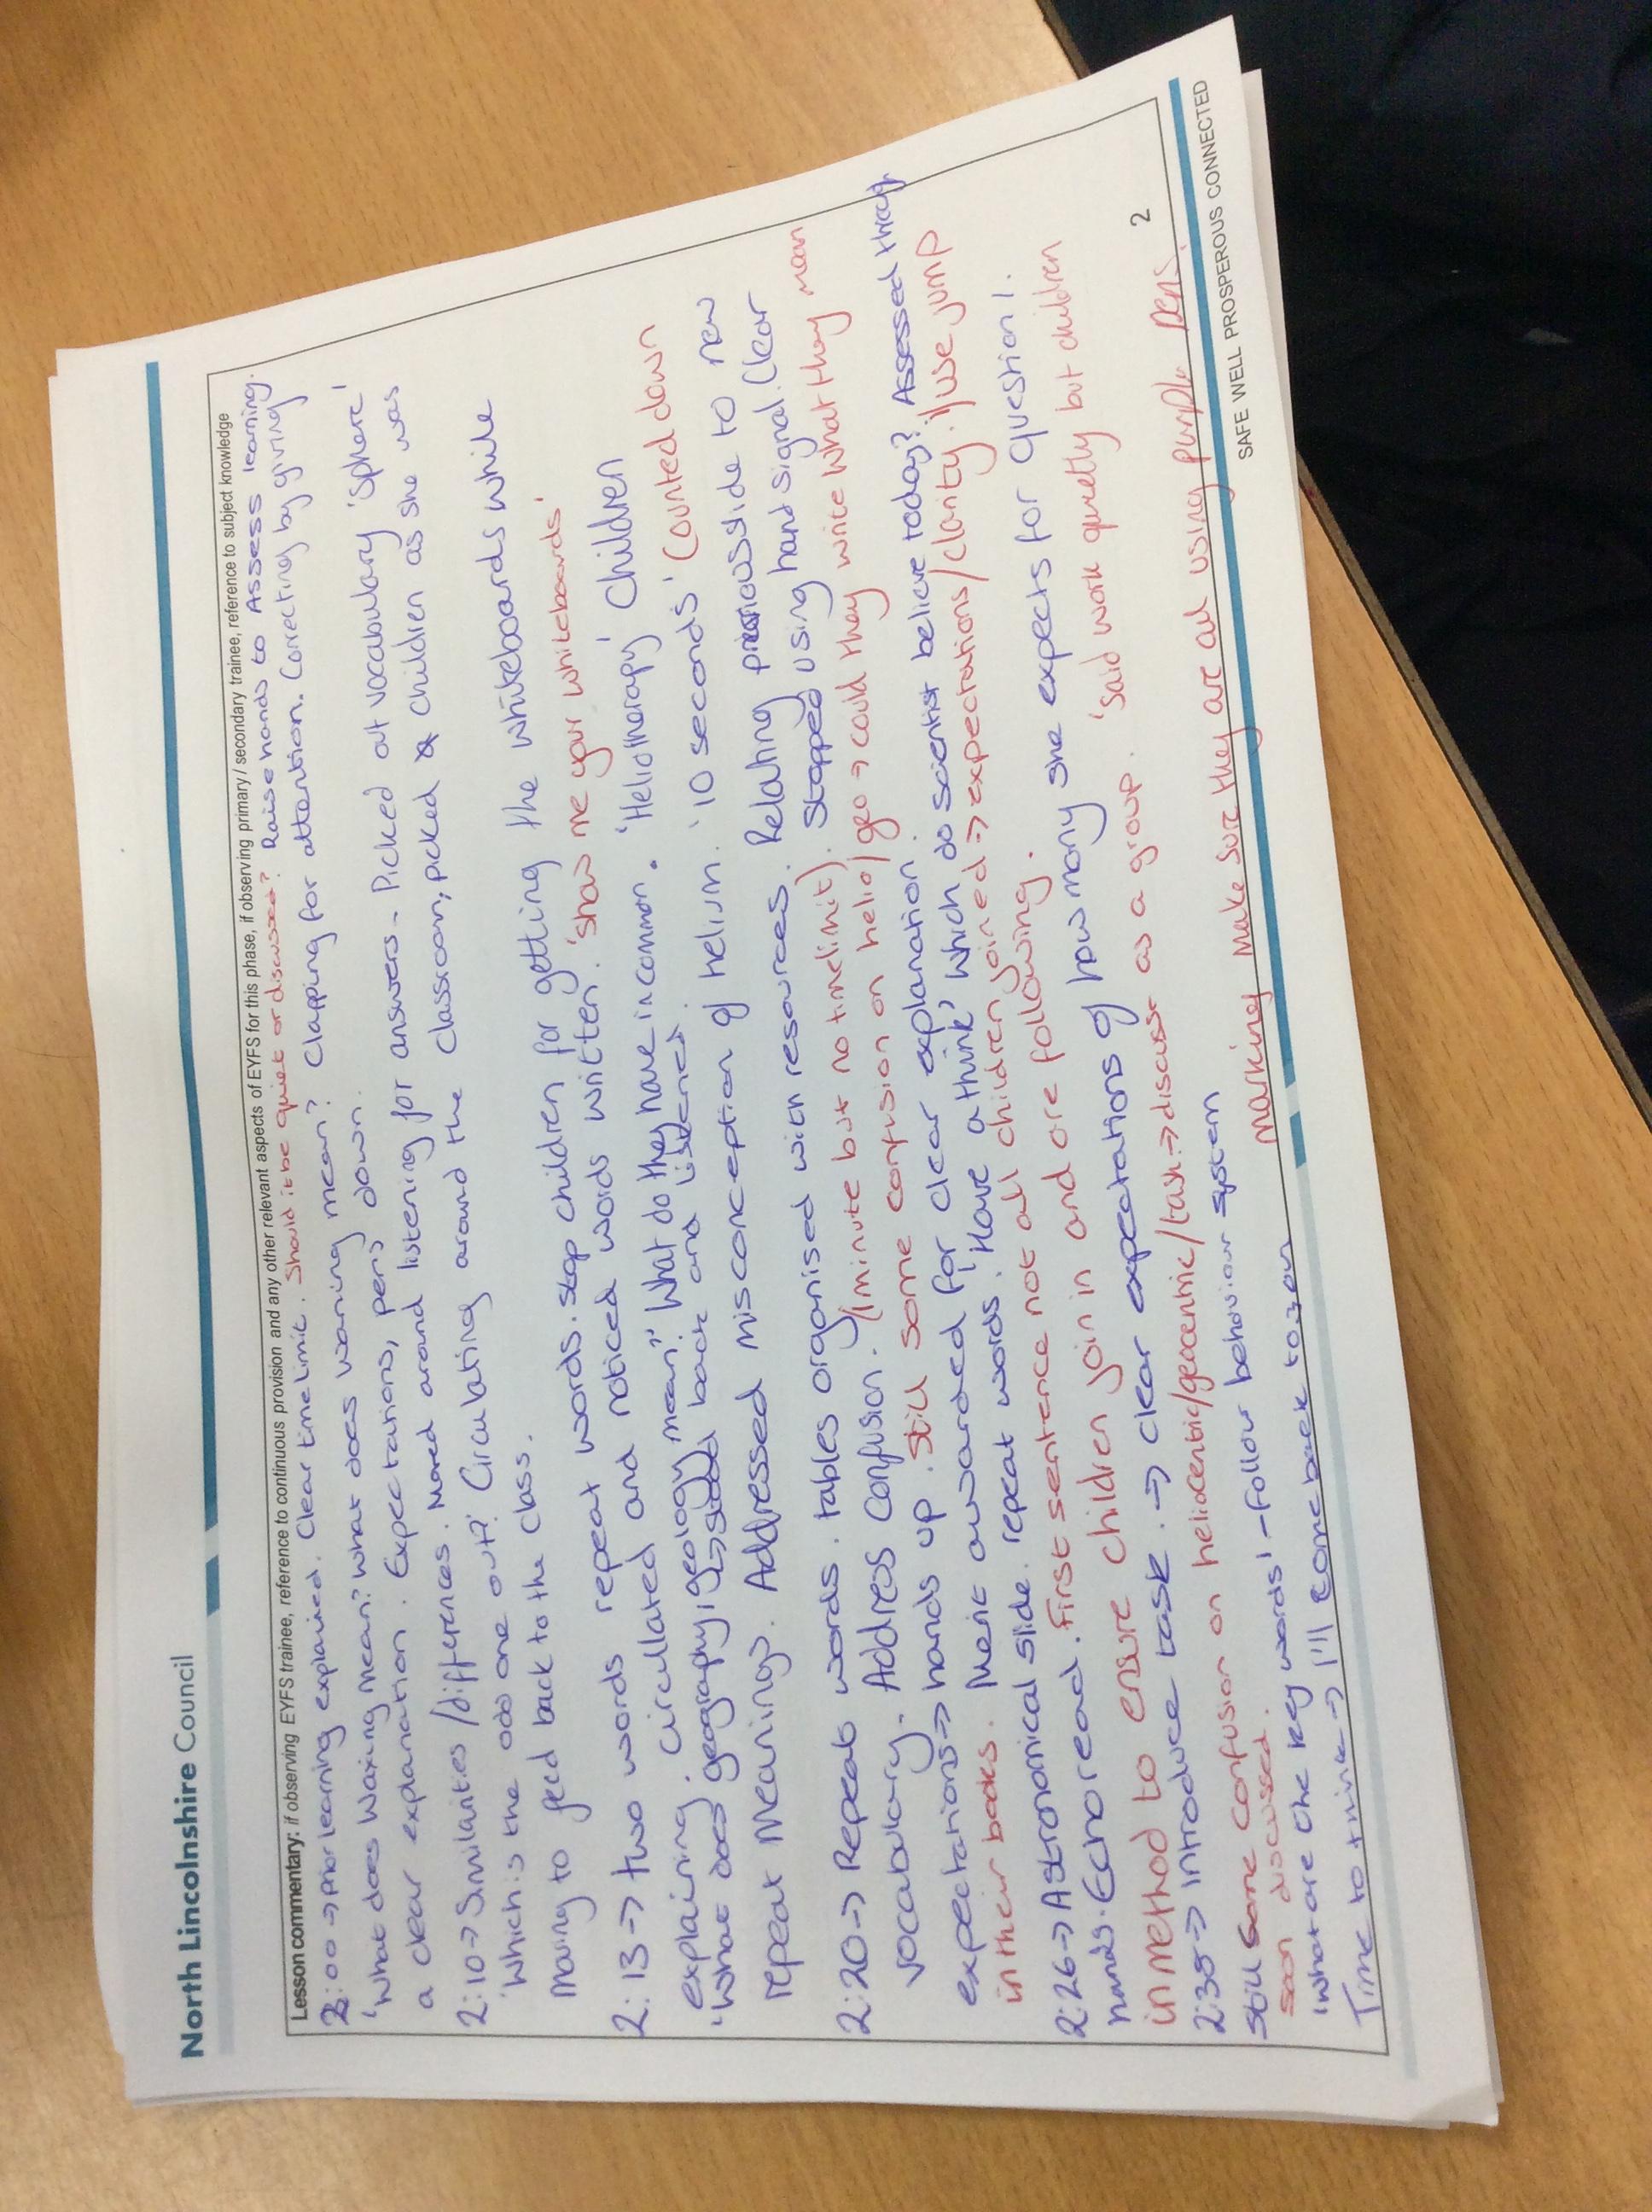 North Lincolnshire Council
Lesson commentary: if observing EYFS trainee, reference to continuous provision and any other relevant aspects of EYFS for this phase, if observing primary / secondary trainee, reference to subject knowledge
2:00 → prior learning explained. Clear time limit. Should it be quiet or discussed? Raise hands to Assess learning.
'What does waxing mean? What does waning mean? Clapping for attention. Correcting by giving
a clear explanation. Expectations, pens down.
2:10 → Similarities/differences. Moved around listening for answers. Picked out vocabulary 'sphere'
'Which is the odd one out?' Circulating around the classroom, picked children as she was
moving to feed back to the class.
2:13 → two words repeat words. stop children for getting the whiteboards while
explaining. Circullated and noticed words written. 'show me your whiteboards'
'What does geography/geology mean?' What do they have in common. 'Heliotherapy' Children
↳ sided back and listened
repeat meanings. Addressed misconception of helium. '10 seconds' Counted down
2:20 → Repeat words. tables organised with resources. Relating previous slide to new
vocabulary. Address confusion. (minute but no timelimit). Stopped using hand signal. Clear
expectations → hands up. Still some confusion on helio/geo → could they write what they mean
in their books. Merit awarded for clear explanation.
2:26 → Astronomical slide. repeat words. 'Have a think' which do scientist believe today? Assessed through
hands. Echo read. First sentence not all children joined → expectations/clarity. i/use jump
in method to ensure children join in and are following.
2:35 → introduce task. → clear expectations of how many she expects for question 1.
Still some confusion on heliocentric/geocentric/task → discuss as a group. 'Said work quietly but children
soon discussed.
'What are the key words' - follow behaviour system
Time to think → I'll come back to you
marking make sure they are all using purple pens.
2
SAFE WELL PROSPEROUS CONNECTED